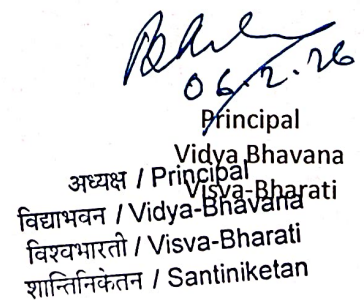 06.2.26
Principal
Vidya Bhavana
Visva-Bharati
अध्यक्ष / Principal
विद्याभवन / Vidya-Bhavana
विश्वभारती / Visva-Bharati
शान्तिनिकेतन / Santiniketan